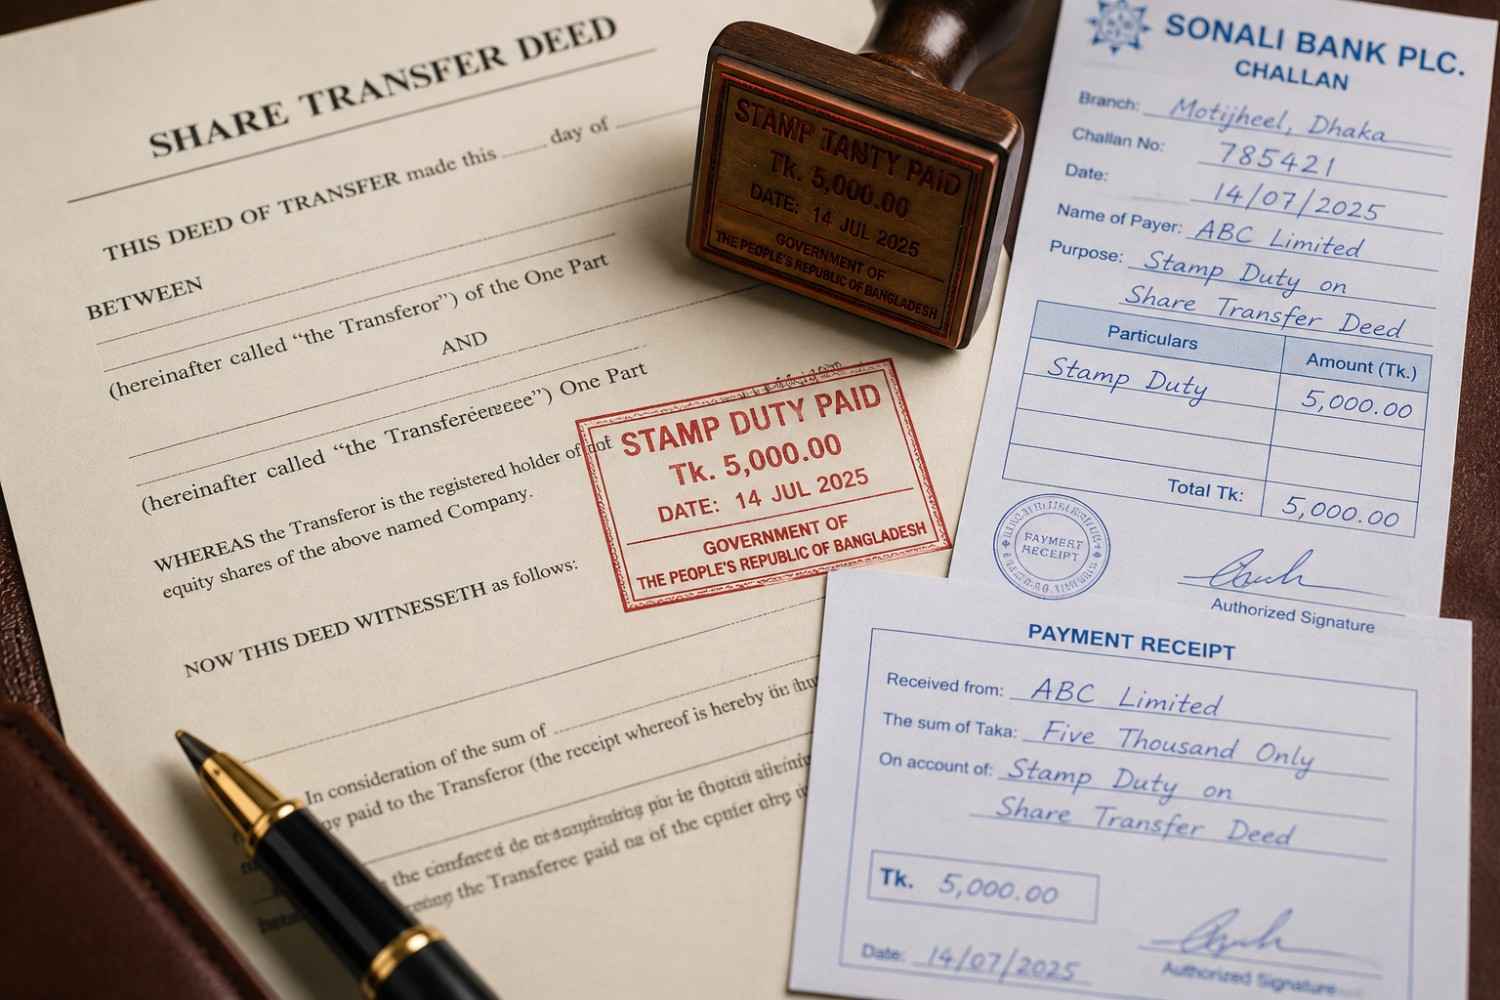 SHARE TRANSFER DEED
THIS DEED OF TRANSFER made this ........ day of
BETWEEN
(hereinafter called “the Transferor”) of the One Part
AND
(hereinafter called “the Transfereeeeee”) One Part
WHEREAS the Transferor is the registered holder of
equity shares of the above named Company.
NOW THIS DEED WITNESSETH as follows:
In consideration of the sum of
paid to the Transferor (the receipt whereof is hereby
the
the Transferee paid
of the
STAMP TANTY PAID
Tk. 5,000.00
DATE: 14 JUL 2025
GOVERNMENT OF
THE PEOPLE'S REPUBLIC OF BANGLADESH
STAMP DUTY PAID
Tk. 5,000.00
DATE: 14 JUL 2025
GOVERNMENT OF
THE PEOPLE'S REPUBLIC OF BANGLADESH
SONALI BANK PLC.
CHALLAN
Branch: Motijheel, Dhaka
Challan No: 785421
Date: 14/07/2025
Name of Payer: ABC Limited
Purpose: Stamp Duty on
Share Transfer Deed
Particulars Amount (Tk.)
Stamp Duty 5,000.00
Total Tk: 5,000.00
PAYMENT
RECEIPT
Authorized Signature
PAYMENT RECEIPT
Received from: ABC Limited
The sum of Taka: Five Thousand Only
On account of: Stamp Duty on
Share Transfer Deed
Tk. 5,000.00
Date: 14/07/2025
Authorized Signature